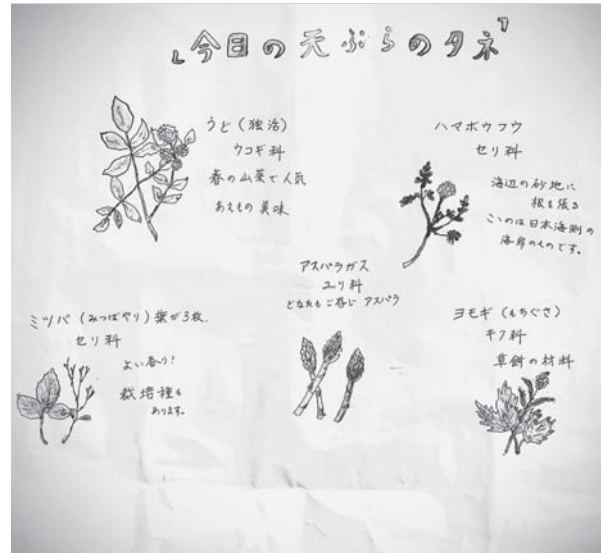 「今日の天ぷらのタネ」
うど（独活）
ウコギ科
春の山菜で人気
あえもの美味
ハマボウフウ
セリ科
海辺の砂地に
根を張る
こいのは日本海側の
海岸のものです。
アスパラガス
ユリ科
どなたもご存じ アスパラ
ミツバ（みつばやり）葉が3枚.
セリ科
よい香り!
栽培種も
あります。
ヨモギ（もちぐさ）
キク科
草餅の材料